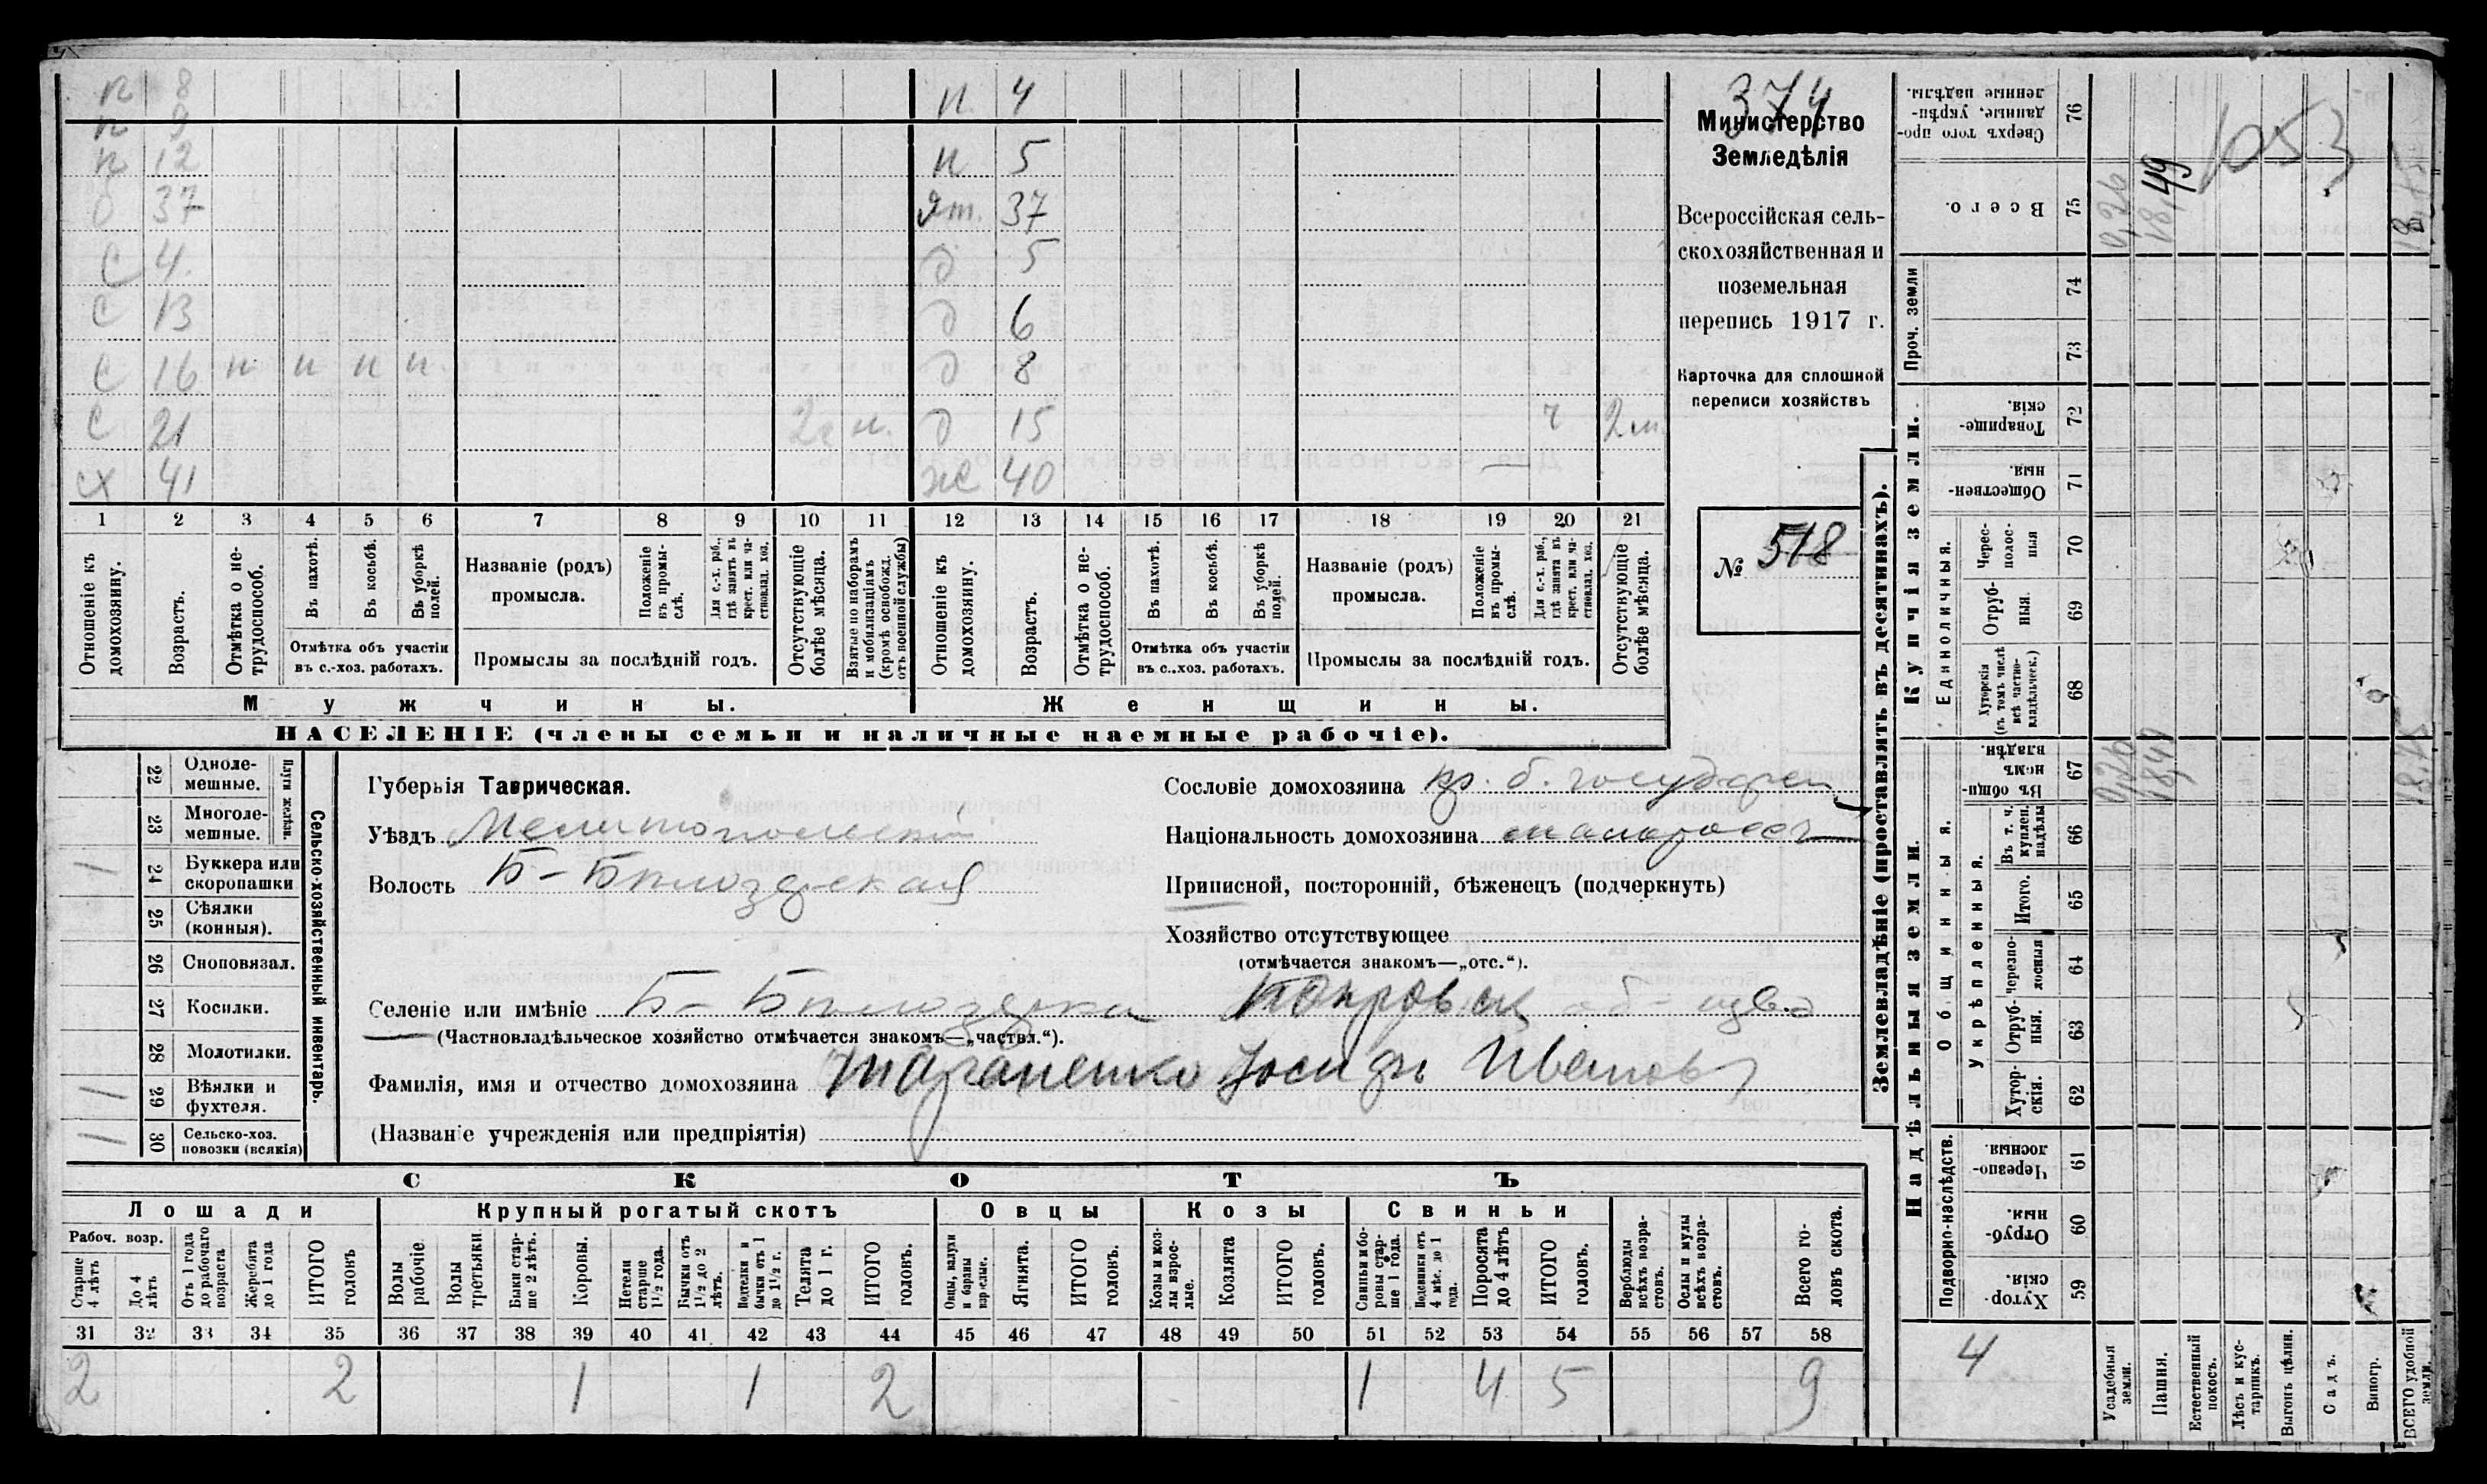 п 8 п 4
п 9
п 12 п 5
б 37 ят. 37
с 4. д 5
с 13 д 6
с 16 н н н н д 8
с 21 2г н. д 15 ч 2 м.
х 41 ж 40 —
1 2 3 4 5 6 7 8 9 10 11 12 13 14 15 16 17 18 19 20 21
Отношеніе къ домохозяину.
Возрастъ.
Отмѣтка о не-трудоспособ.
Въ пахотѣ.
Въ косьбѣ.
Въ уборкѣ полей.
Отмѣтка объ участіи
въ с.-хоз. работахъ.
Названіе (родъ)
промысла.
Положеніе въ промы-слѣ.
Для с.-х. раб., гдѣ занятъ въ крест. или ча-ствовлад. хоз.
Промыслы за послѣдній годъ.
Отсутствующіе болѣе мѣсяца.
Взятые по наборамъ и мобилизаціямъ (кромѣ освобожд. отъ военной службы)
Отношеніе къ домохозяину.
Возрастъ.
Отмѣтка о не-трудоспособ.
Въ пахотѣ.
Въ косьбѣ.
Въ уборкѣ полей.
Отмѣтка объ участіи
въ с..хоз. работахъ.
Названіе (родъ)
промысла.
Положеніе въ промы-слѣ.
Для с.-х. раб., гдѣ занята въ крест. или ча-ствовлад. хоз.
Промыслы за послѣдній годъ.
Отсутствующіе болѣе мѣсяца.
Мужчины.
Женщины.
НАСЕЛЕНІЕ (члены семьи и наличные наемные рабочіе).
374
Министерство
Земледѣлія
Всероссійская сель-
скохозяйственная и
поземельная
перепись 1917 г.
Карточка для сплошной
переписи хозяйствъ
№ 518
22 Одноле-мешные.
23 Многоле-мешные.
Плуги желѣзн.
24 Буккера или скоропашки 1
25 Сѣялки (конныя).
26 Сноповязал.
27 Косилки.
28 Молотилки.
29 Вѣялки и фухтеля. 1
30 Сельско-хоз. повозки (всякія) 1
Сельско-хозяйственный инвентарь.
Губерья Таврическая.
Уѣздъ Мелитопольскій
Волость Б-Бѣлозерская
Сословіе домохозяина кр. б. государ
Національность домохозяина малороссъ
Приписной, посторонній, бѣженецъ (подчеркнуть)
Хозяйство отсутствующее
(отмѣчается знакомъ—„отс.“).
Селеніе или имѣніе Б- Бѣлозерка Покровск об-щво
(Частновладѣльческое хозяйство отмѣчается знакомъ—„частвл.“).
Фамилія, имя и отчество домохозяина Тараненко Іосифъ Иванов
(Названіе учрежденія или предпріятія)
СКОТЪ
Лошади Крупный рогатый скотъ Овцы Козы Свиньи
Рабоч. возр.
Старше 4 лѣтъ
До 4 лѣтъ
Отъ 1 года до рабочаго возраста
Жеребята до 1 года
ИТОГО головъ
Волы рабочіе
Волы третьяки
Быки стар-ше 2 лѣтъ.
Коровы.
Нетели старше 1½ года.
Бычки отъ 1½ до 2 лѣтъ.
Подтелки и бычки отъ 1 до 1½ г.
Телята до 1 г.
ИТОГО головъ.
Овцы, валухи и бараны взрослые.
Ягнята.
ИТОГО головъ.
Козы и коз-лы взрос-лые.
Козлята
ИТОГО головъ.
Свиньи и бо-ровы стар-ше 1 года.
Подсвинки отъ 4 мѣс. до 1 года.
Поросята до 4 лѣтъ
ИТОГО головъ.
Верблюды всѣхъ возра-стовъ.
Ослы и мулы всѣхъ возра-стовъ.
Всего го-ловъ скота.
31 32 33 34 35 36 37 38 39 40 41 42 43 44 45 46 47 48 49 50 51 52 53 54 55 56 57 58
2 2 1 1 2 1 4 5 9
Землевладѣніе (проставлять въ десятинахъ).
Купчія земли.
Надѣльныя земли.
Сверхъ того про-данные, укрѣп-ленные надѣлы. 76
Всего. 75 0,26 18,49 18,75
1053
Проч. земли 74 73
Товарище-скія. 72
Обществен-ныя. 71
Единоличныя.
Черес-полос-ныя 70
Отруб-ныя. 69
Хуторскія (въ томъ числѣ всѣ частно-владѣльческ.) 68
Общинныя.
Въ общи-номъ владѣн. 67 0,26 18,49 18,75
Укрѣпленныя.
Въ т. ч. куплен. надѣлы 66
Итого. 65
Черезпо-лосныя 64
Отруб-ныя. 63
Хутор-скія. 62
Подворно-наслѣдств.
Черезпо-лосныя 61
Отруб-ныя. 60
Хутор-скія. 59
4
Усадебныя земли.
Пашня.
Естественный покосъ.
Лѣсъ и кус-тарникъ.
Выгонъ цѣлин.
Садъ.
Виногр.
ВСЕГО удобной земли.